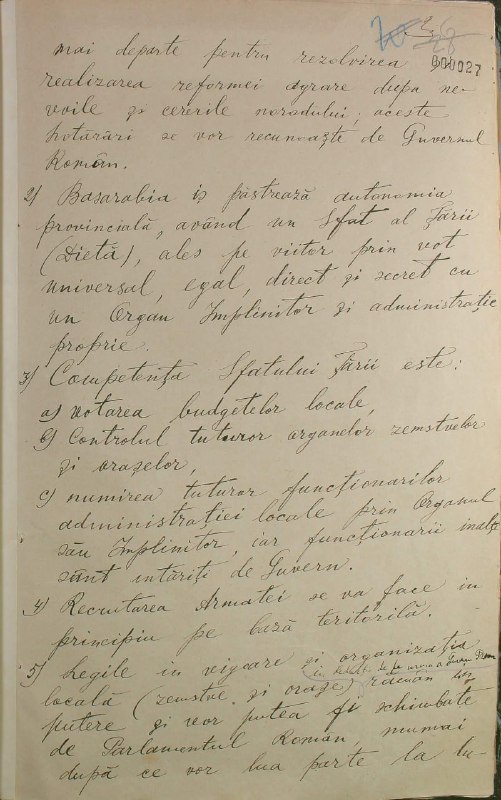 28
000027
mai departe pentru rezolvirea și
realizarea reformei agrare dupa ne-
voile și cererile norodului; aceste
hotărâri se vor recunoaște de Guvernul
Român.
2) Basarabia iș păstrează autonomia
provincială, având un Sfat al Țării
(Dietă), ales pe viitor prin vot
universal, egal, direct și secret cu
un Organ Împlinitor și administrație
proprie.
3) Competența Sfatului Țării este:
a) votarea budgetelor locale,
b) Controlul tuturor organelor zemstvelor
și orașelor,
c) numirea tuturor funcționarilor
administrației locale prin Organul
său Împlinitor, iar funcționarii înalți
sânt întăriți de Guvern.
4) Recrutarea Armatei se va face in
principiu pe bază teritorilă.
5) Legile in vigoare și organizația
locală (zemstve și orașe) rămân in
putere și vor putea fi schimbate
de Parlamentul Român, numai
după ce vor lua parte la lu-